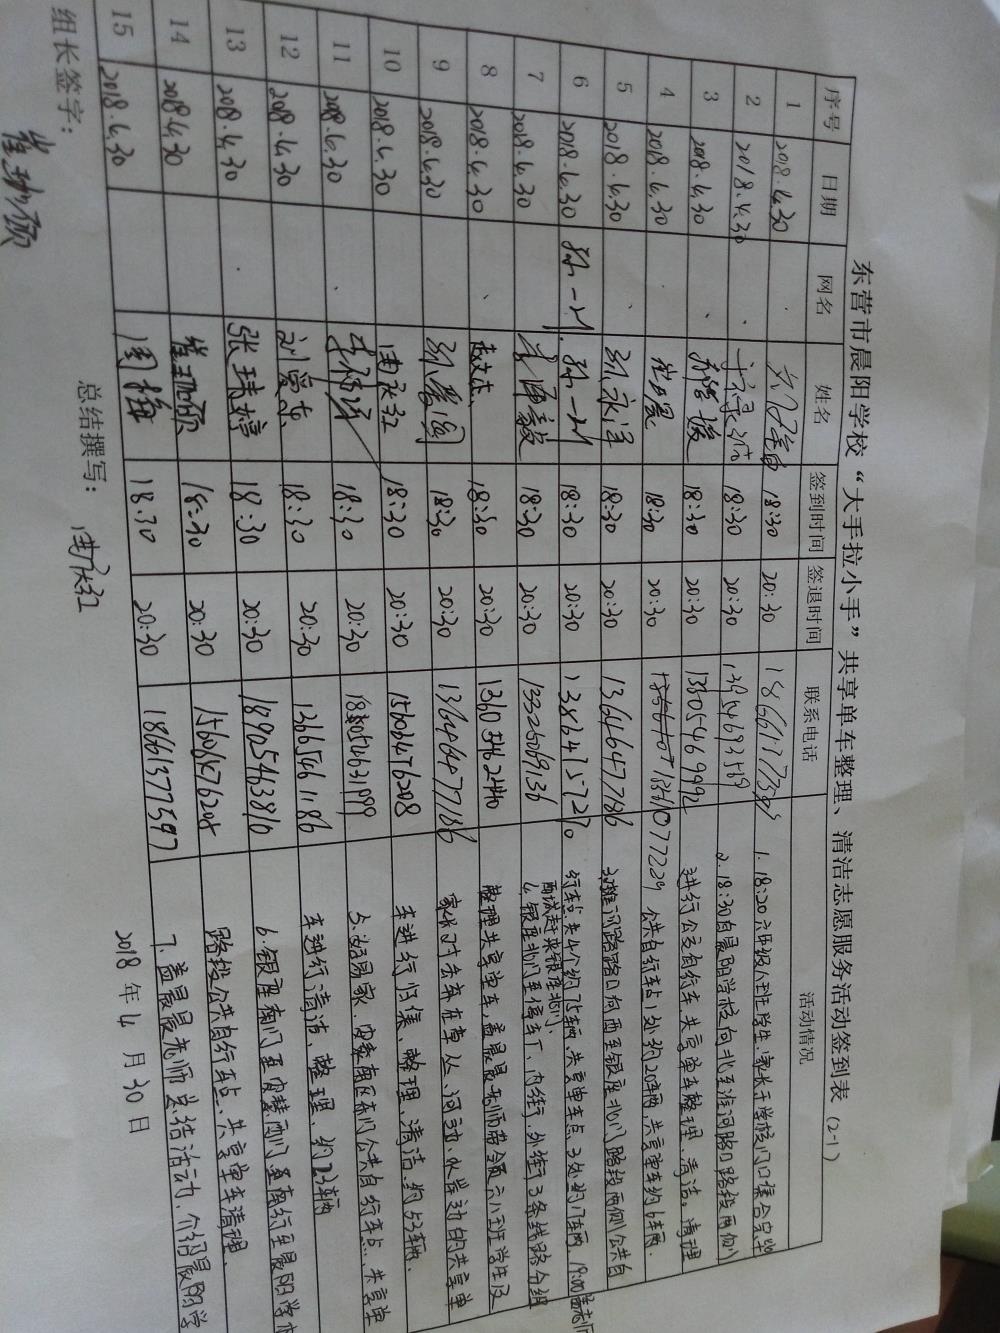 东营市晨阳学校“大手拉小手”共享单车整理、清洁志愿服务活动签到表（2-1）
序号 日期 网名 姓名 签到时间 签退时间 联系电话 活动情况
1 2018.4.30 18:30 20:30 18661377397 1.18:20六年级八班学生、家长于学校门口集合完毕
2 2018.4.30 18:30 20:30 13954693539 2.18:30由晨阳学校向北至淮河路口路段两侧
3 2018.4.30 18:30 20:30 13805469992 进行公共自行车、共享单车整理、清洁。清理
4 2018.4.30 18:30 20:30 公共自行车占处约20车辆,共享单车约6车辆.
5 2018.4.30 孙永洋 18:30 20:30 13646477186 3.淮河路路口向西至银座北门路段两侧公共自
6 2018.4.30 孙一 孙一 18:30 20:30 13864757270 行车点共4个约75辆,共享单车点3处约17车辆. 19:00孟老师
7 2018.4.30 18:30 20:30 13325069136 4.银座北门至停车厂、内街、外街3条线路分组
8 2018.4.30 赵文杰 18:30 20:30 13605462440 整理共享单车,孟晨晨老师带领六八班学生及
9 2018.4.30 18:30 20:30 13646477186 家长对丢弃在草丛、河边、水岸边的共享单
10 2018.4.30 18:30 20:30 15606476208 车进行归集、整理、清洁.约53辆.
11 2018.4.30 18:30 20:30 18805463999 5. 东南区东门公共自行车点、共享单
12 2018.4.30 刘爱东 18:30 20:30 13665461186 车进行清洁、整理、约23车辆
13 2018.4.30 张玮婷 18:30 20:30 18965463816 6.银座南门至 西门至南行至晨阳学校
14 2018.4.30 崔 18:30 20:30 15606476208 路段公共自行车点、共享单车清理.
15 2018.4.30 周梅 18:30 20:30 18661377397 7.孟晨晨老师总结活动、介绍晨阳学
组长签字： 崔 总结撰写： 2018 年 4 月 30 日